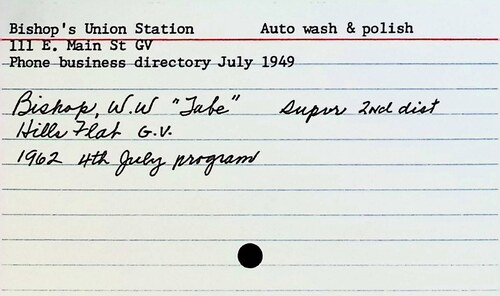 Bishop's Union Station Auto wash & polish
111 E. Main St GV
Phone business directory July 1949
Bishop, W.W "Tabe" Supvr 2nd dist
Hills Flat G.V.
1962 4th July program